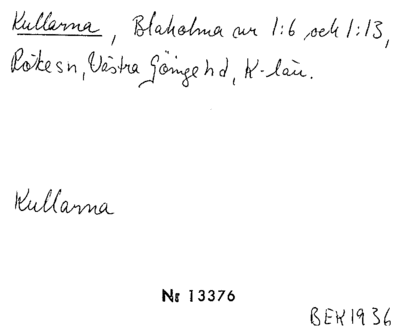 Kullarna, Blaholma nr 1:6 och 1:13,
Rökesn, Västra Göinge hd, K-län.
Kullarna
Nr 13376
BEK 1936